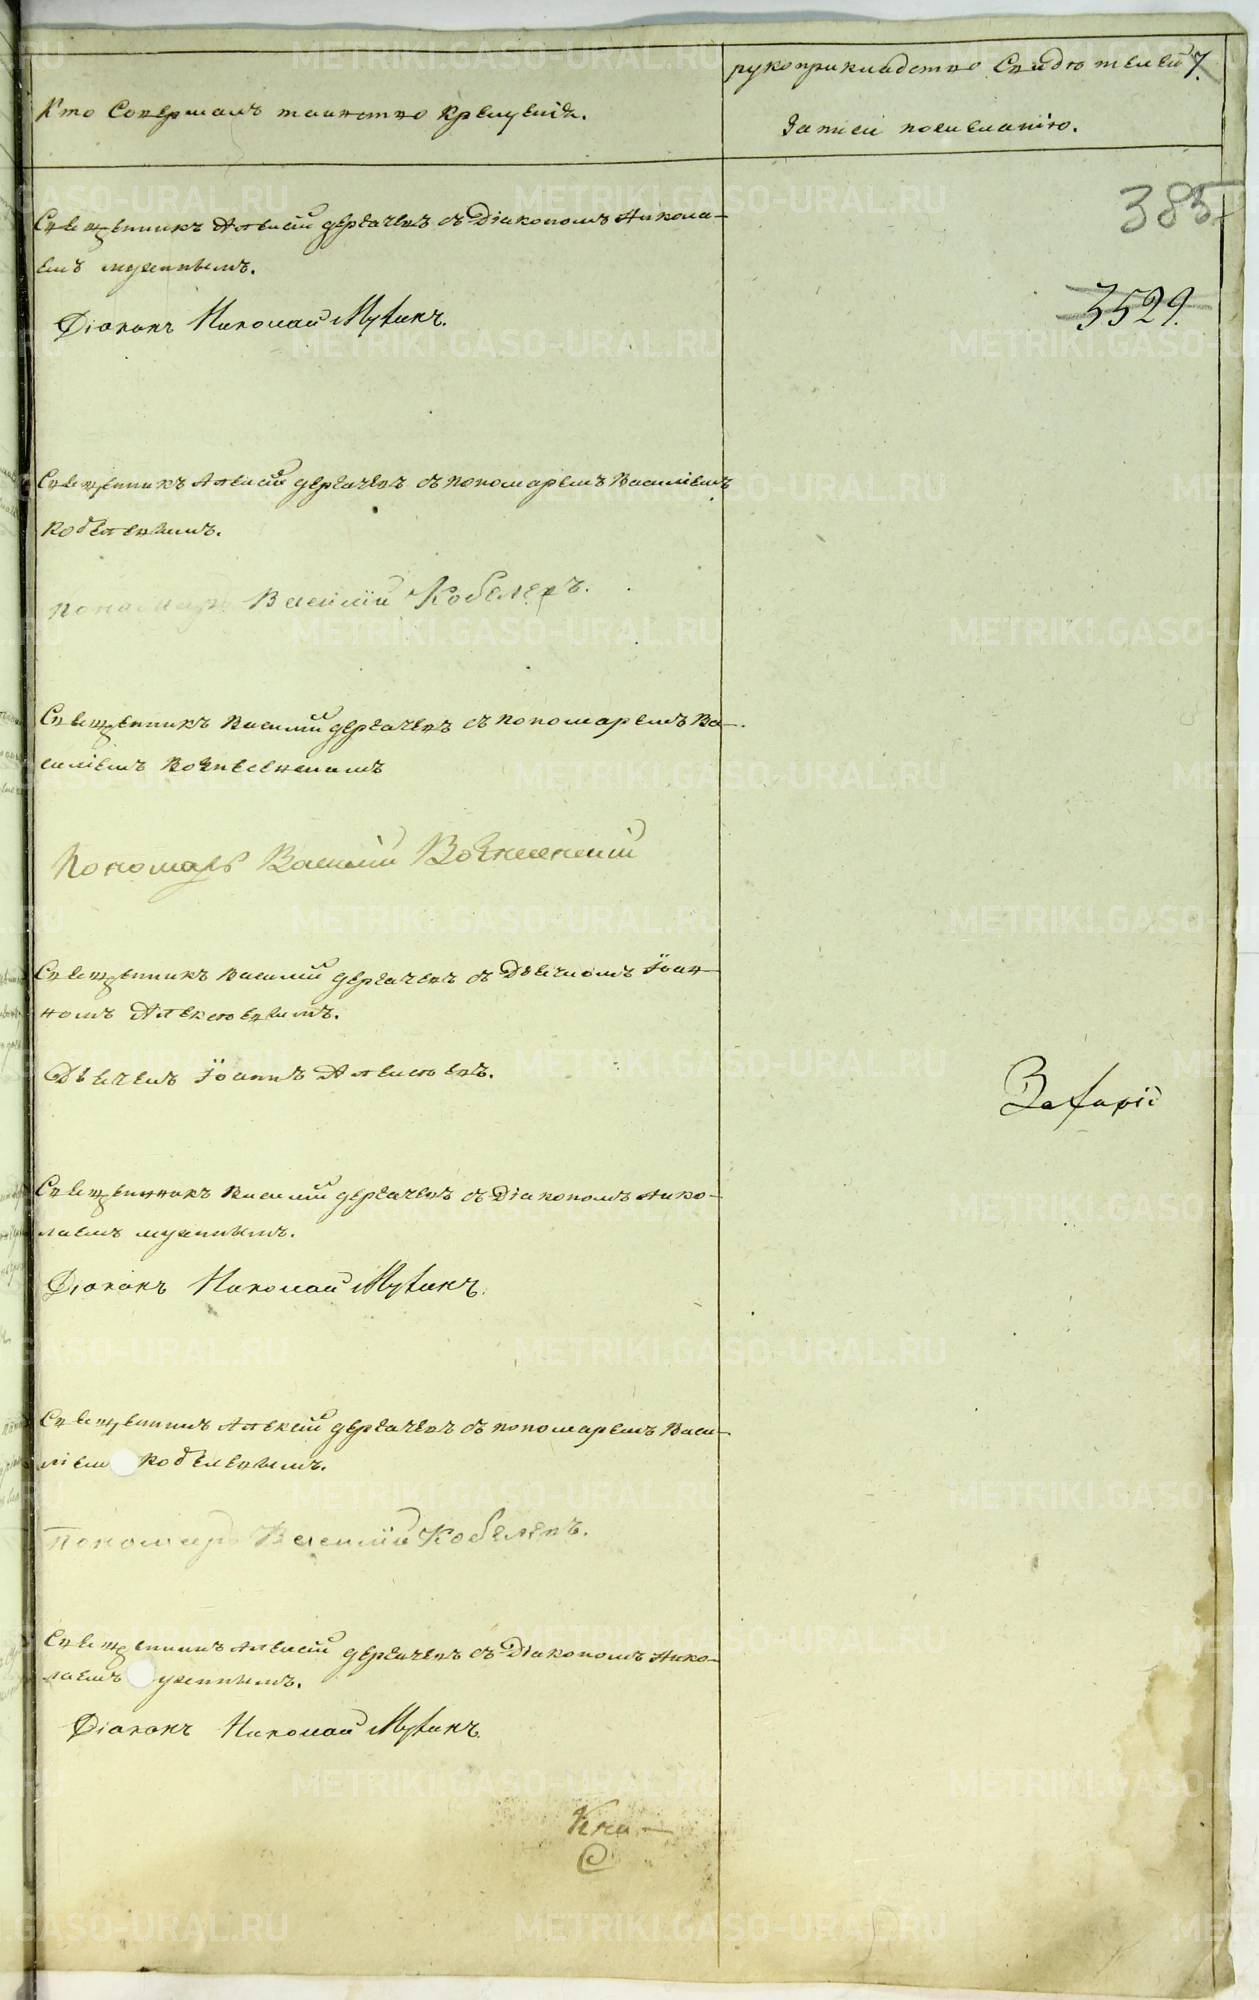 Кто Совершалъ таинство Крещенія.
рукоприкладство Свидѣтелей 7.
Записи по желанію.
385
3529.
Священникъ Алексій Дергачевъ съ Діакономъ Никола-
емъ Мухинымъ.
Діаконъ Николай Мухинъ.
Священникъ Алексій Дергачевъ съ пономаремъ Василіемъ
Кобелевымъ.
Пономарь Василій Кобелевъ.
Священникъ Василій Дергачевъ съ пономаремъ Ва-
силіемъ Вознесенскимъ
Пономарь Василій Вознесенскій
Священникъ Василій Дергачевъ съ Дьячкомъ Іоан-
номъ Алексѣевымъ.
Дьячекъ Іоаннъ Алексѣевъ.
Захарія
Священникъ Василій Дергачевъ съ Діакономъ Нико-
лаемъ Мухинымъ.
Діаконъ Николай Мухинъ.
Священникъ Алексій Дергачевъ съ пономаремъ Васи-
ліем Кобелевымъ.
Пономарь Василій Кобелевъ.
Священникъ Алексій Дергачевъ съ Діакономъ Нико-
лаемъ ухинымъ.
Діаконъ Николай Мухинъ.
METRIKI.GASO-URAL.RU